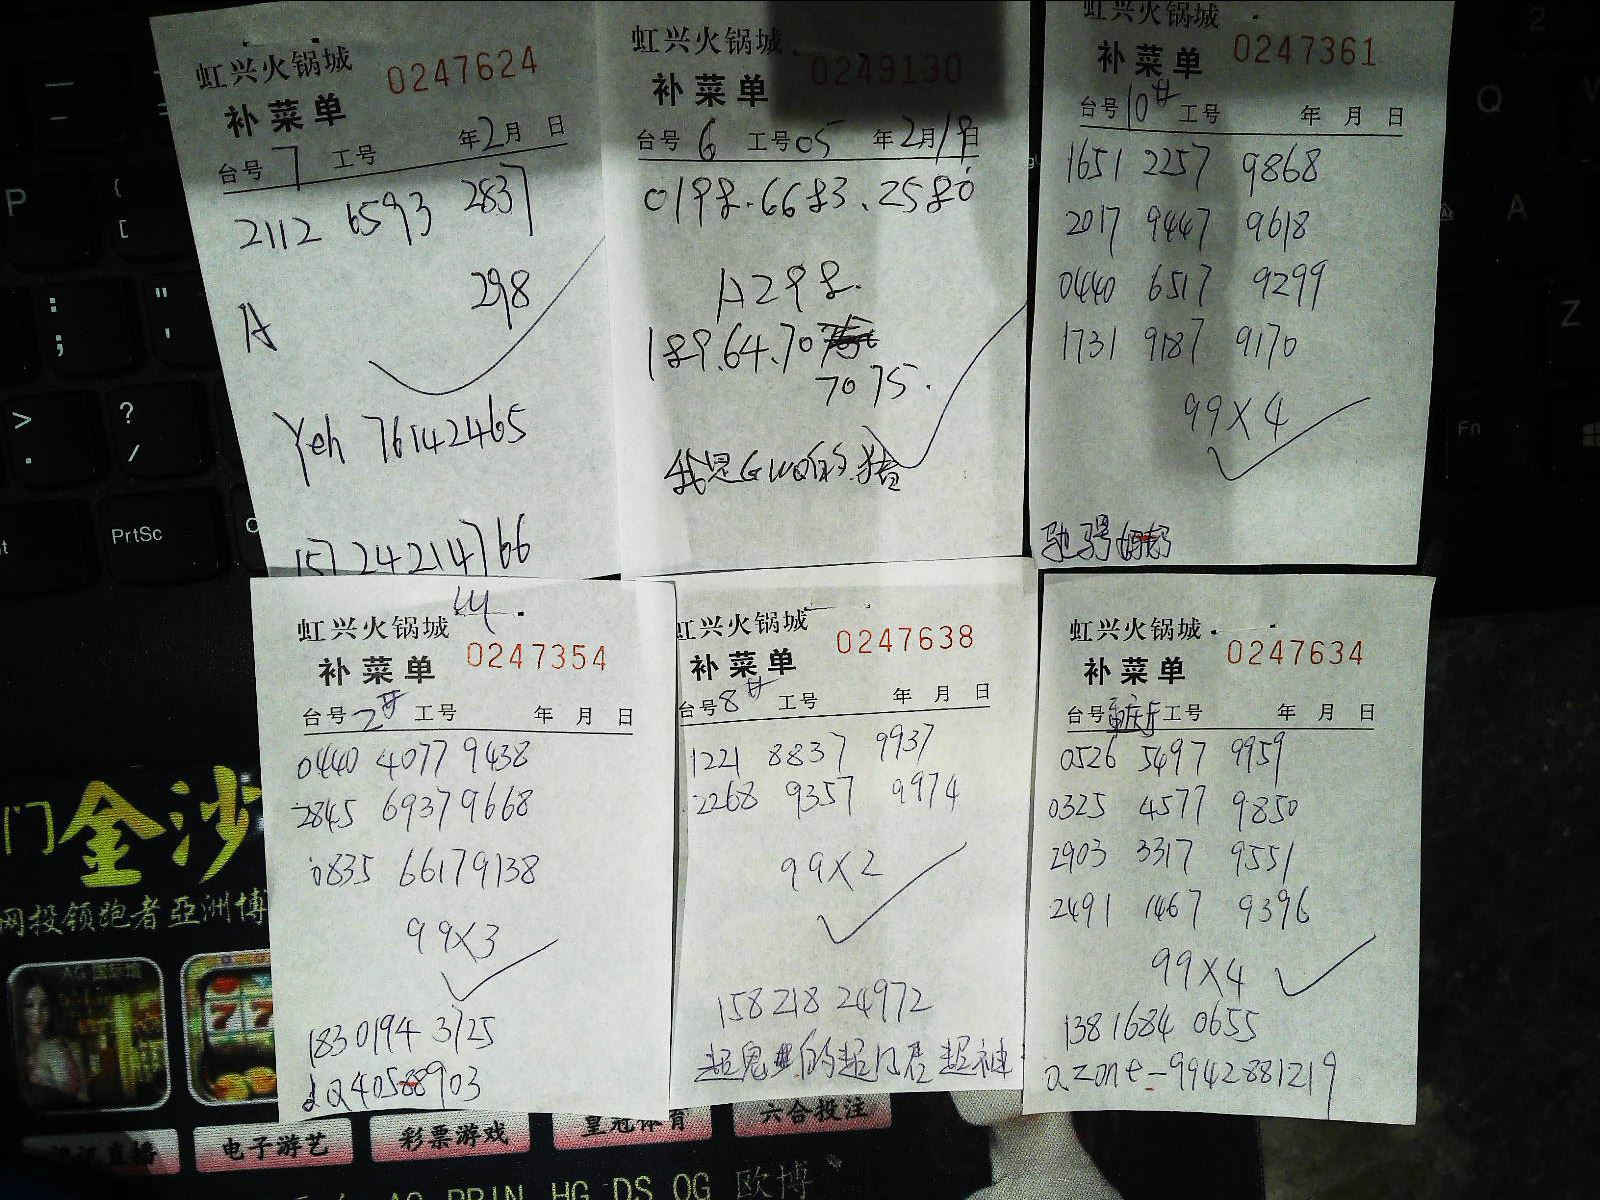 虹兴火锅城
补菜单 0247624
台号 7 工号 年 2 月 日
2112 6593 2837
298
A
Yeh 76142465
157 24214766
虹兴火锅城
补菜单 0249130
台号 6 工号 05 年 2 月 19 日
0198.6683.2580
A298.
189.64.70
7075.
我是GWO的猪
虹兴火锅城
补菜单 0247361
台号 10# 工号 年 月 日
1651 2257 9868
2017 9447 9618
0440 6517 9299
1731 9187 9170
99X4
虹兴火锅城
补菜单 0247354
台号 2# 工号 年 月 日
0440 4077 9438
2845 6937 9668
0835 6617 9138
99X3
183 0194 3725
虹兴火锅城
补菜单 0247638
台号 8# 工号 年 月 日
1221 8837 9937
2268 9357 9974
99X2
158 218 24972
虹兴火锅城
补菜单 0247634
台号 工号 年 月 日
0526 5497 9959
0325 4577 9850
2903 3317 9551
2491 1467 9396
99X4
138 1684 0655
azone-9942881219
P
{
[
:
;
"
'
>
.
?
/
PrtSc
Q
A
Z
Fn
2
门金沙
网投领跑者亞洲博
AG 国际
电子游艺
彩票游戏
皇冠体育
六合投注
HG DS OG 欧博